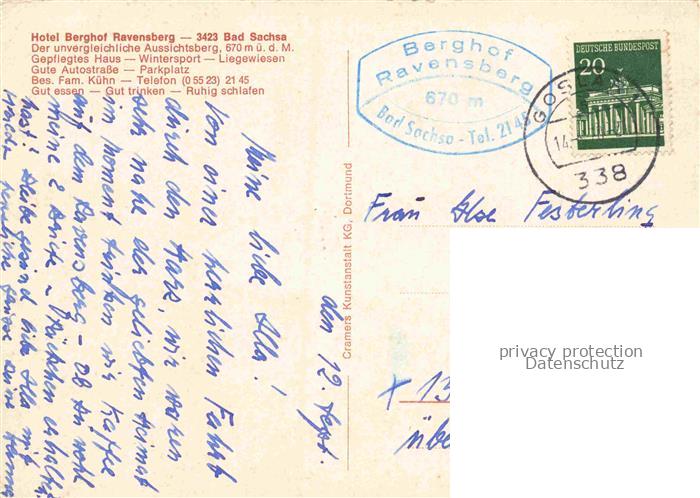 Hotel Berghof Ravensberg — 3423 Bad Sachsa
Der unvergleichliche Aussichtsberg, 670 m ü. d. M.
Gepflegtes Haus — Wintersport — Liegewiesen
Gute Autostraße — Parkplatz
Ges. Fam. Kühn — Telefon (0 55 23) 21 45
Gut essen — Gut trinken — Ruhig schlafen
Berghof
Ravensberg
670 m
Bad Sachsa - Tel. 21 45
DEUTSCHE BUNDESPOST
20
GOSLAR
14
338
den 12. Sept.
Meine liebe Alla!
Von einer herrlichen Fahrt
durch den Harz, wir waren
sehr nahe der geliebten Heimat
im Moment trinken wir Kaffee
auf dem Ravensberg – Ob du wohl
meine 2 Briefe – Päckchen erhalten
hast? Bleibe gesund liebe Alla mit
Frau Ilse Festerling
Cramers Kunstanstalt KG, Dortmund
privacy protection
Datenschutz
x 13
übe